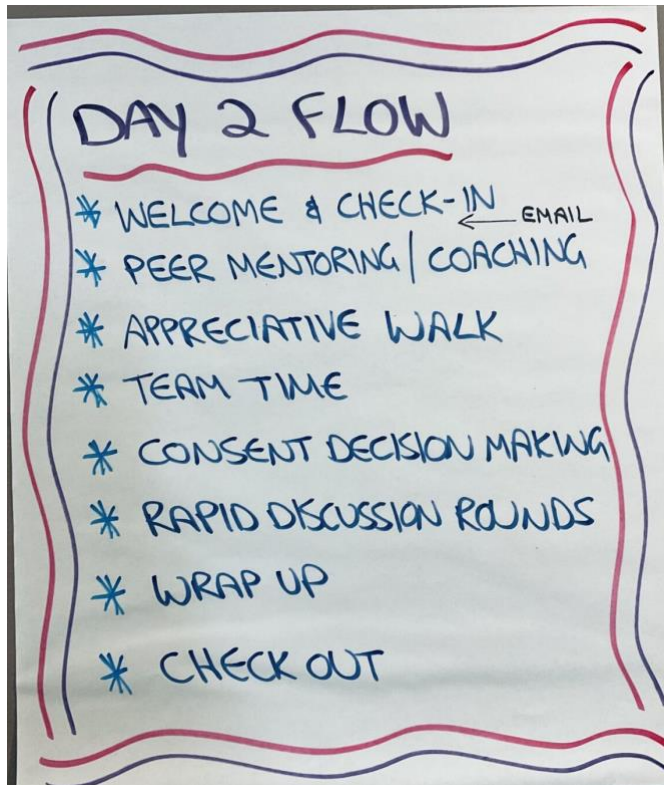 DAY 2 FLOW
* WELCOME & CHECK-IN
← EMAIL
* PEER MENTORING / COACHING
* APPRECIATIVE WALK
* TEAM TIME
* CONSENT DECISION MAKING
* RAPID DISCUSSION ROUNDS
* WRAP UP
* CHECK OUT